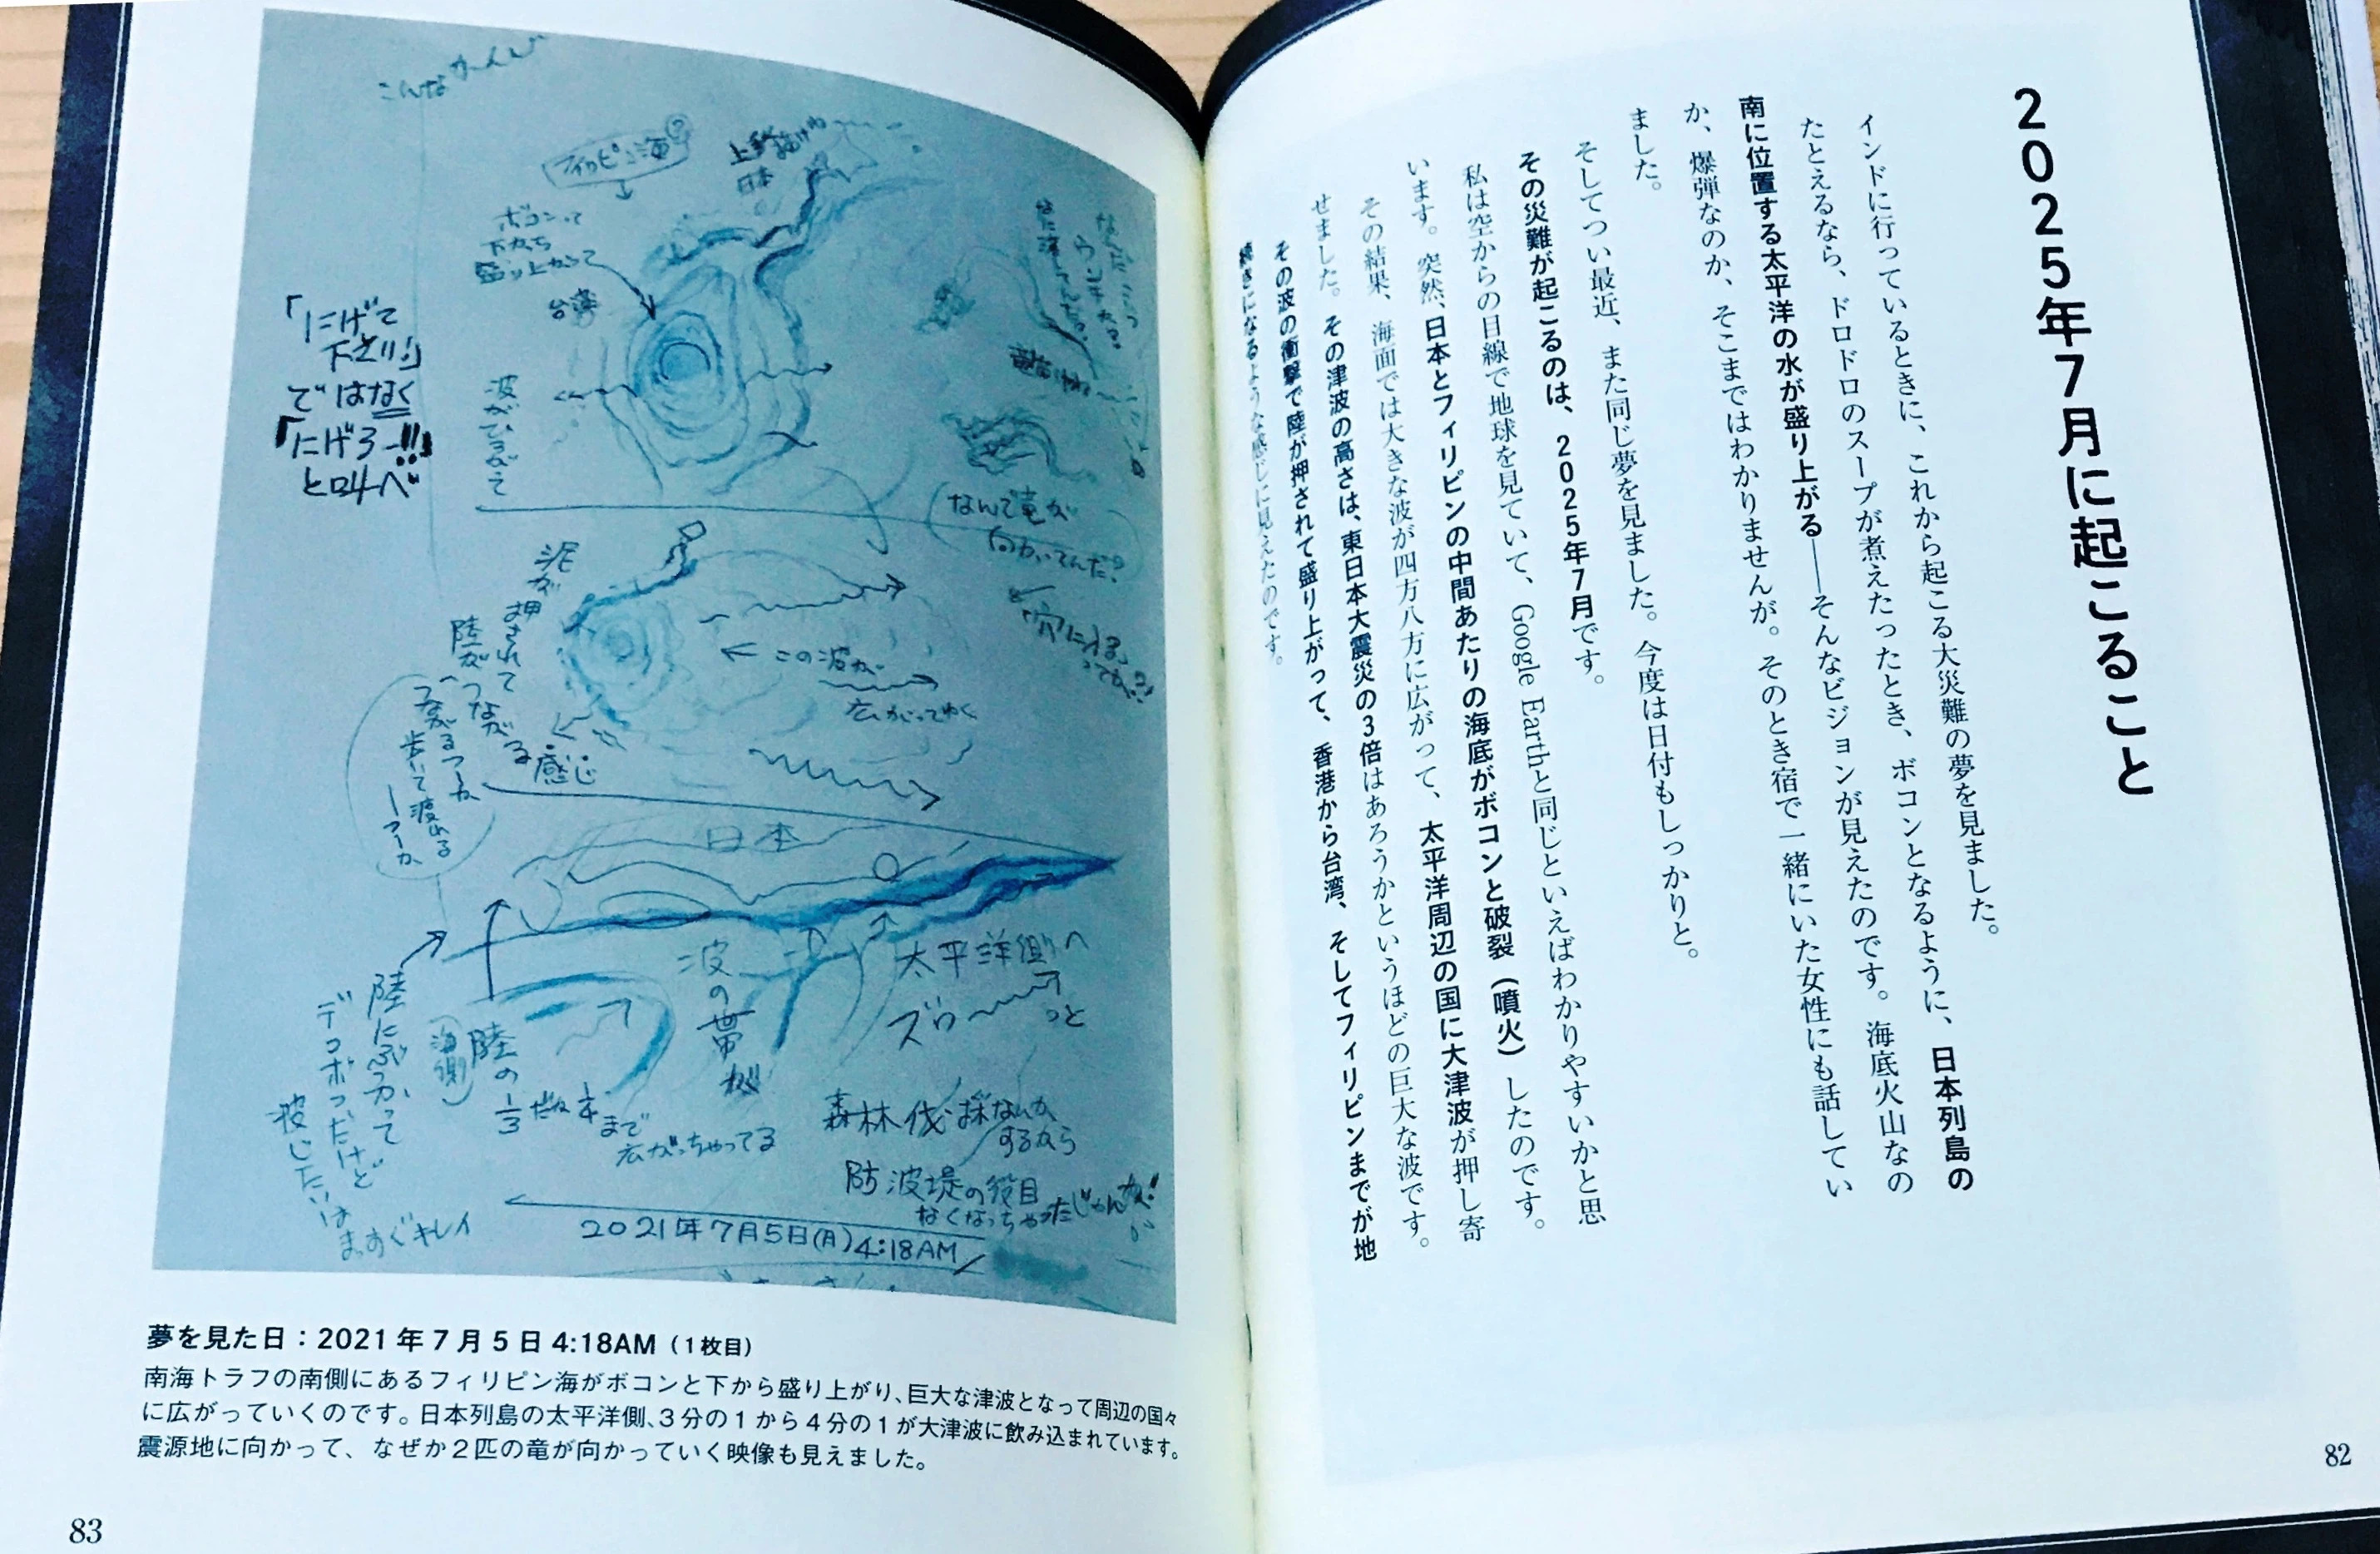 2025年7月に起こること
インドに行っているときに、これから起こる大災難の夢を見ました。
たとえるなら、ドロドロのスープが煮えたったとき、ボコンとなるように、日本列島の
南に位置する太平洋の水が盛り上がる――そんなビジョンが見えたのです。海底火山なの
か、爆弾なのか、そこまではわかりませんが。そのとき宿で一緒にいた女性にも話してい
ました。
そしてつい最近、また同じ夢を見ました。今度は日付もしっかりと。
その災難が起こるのは、2025年7月です。
私は空からの目線で地球を見ていて、Google Earthと同じといえばわかりやすいかと思
います。突然、日本とフィリピンの中間あたりの海底がボコンと破裂（噴火）したのです。
その結果、海面では大きな波が四方八方に広がって、太平洋周辺の国に大津波が押し寄
せました。その津波の高さは、東日本大震災の3倍はあろうかというほどの巨大な波です。
その波の衝撃で陸が押されて盛り上がって、香港から台湾、そしてフィリピンまでが地
続きになるような感じに見えたのです。
82
こんなかんじ
フィリピン海?
上手く描けね
日本
ボコンって
下から
盛り上がって
台湾
「にげて
下さい!」
ではなく
「にげろー!!」
と叫べ
波がひろがって
なんで竜が
向かってんだ?
「穴に入る」
ってか?!
泥が押されて
陸がつながる感じ
つながるっつーか
歩いて渡れる
っつーか
この波が
広がってゆく
日本
太平洋側へ
ズゥ〜〜っと
波の帯が
陸にぶつかって
デコボコだけど
波じたいは
まっすぐキレイ
(海側)
陸の
1/3だね 1/4まで
広がっちゃってる
森林伐採なんか
するから
防波堤の役目
なくなっちゃったじゃんか!
2021年7月5日(月)4:18AM
夢を見た日：2021年7月5日4:18AM（1枚目）
南海トラフの南側にあるフィリピン海がボコンと下から盛り上がり、巨大な津波となって周辺の国々
に広がっていくのです。日本列島の太平洋側、3分の1から4分の1が大津波に飲み込まれています。
震源地に向かって、なぜか2匹の竜が向かっていく映像も見えました。
83